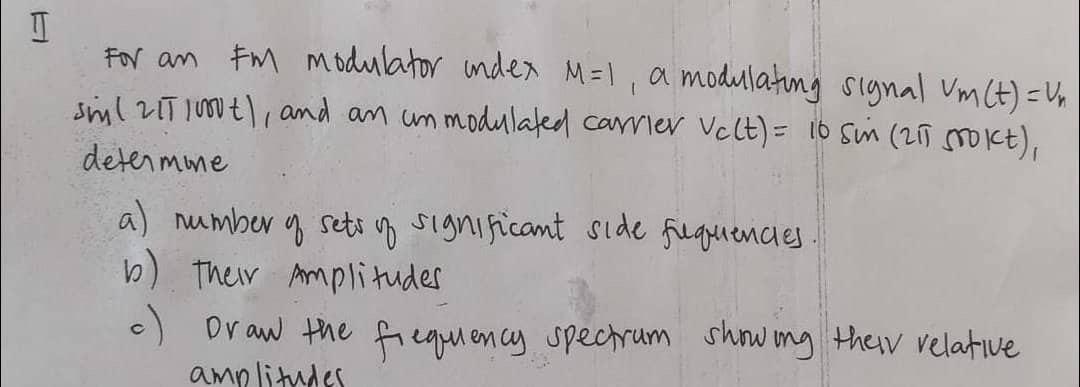 II
For an FM modulator index M=1, a modulating signal Vm(t) = Vm
sin(2π1000t), and an unmodulated carrier Vc(t) = 10 sin (2π 500kt),
determine
a) number of sets of significant side frequencies.
b) Their Amplitudes
c) Draw the frequency spectrum showing their relative
amplitudes